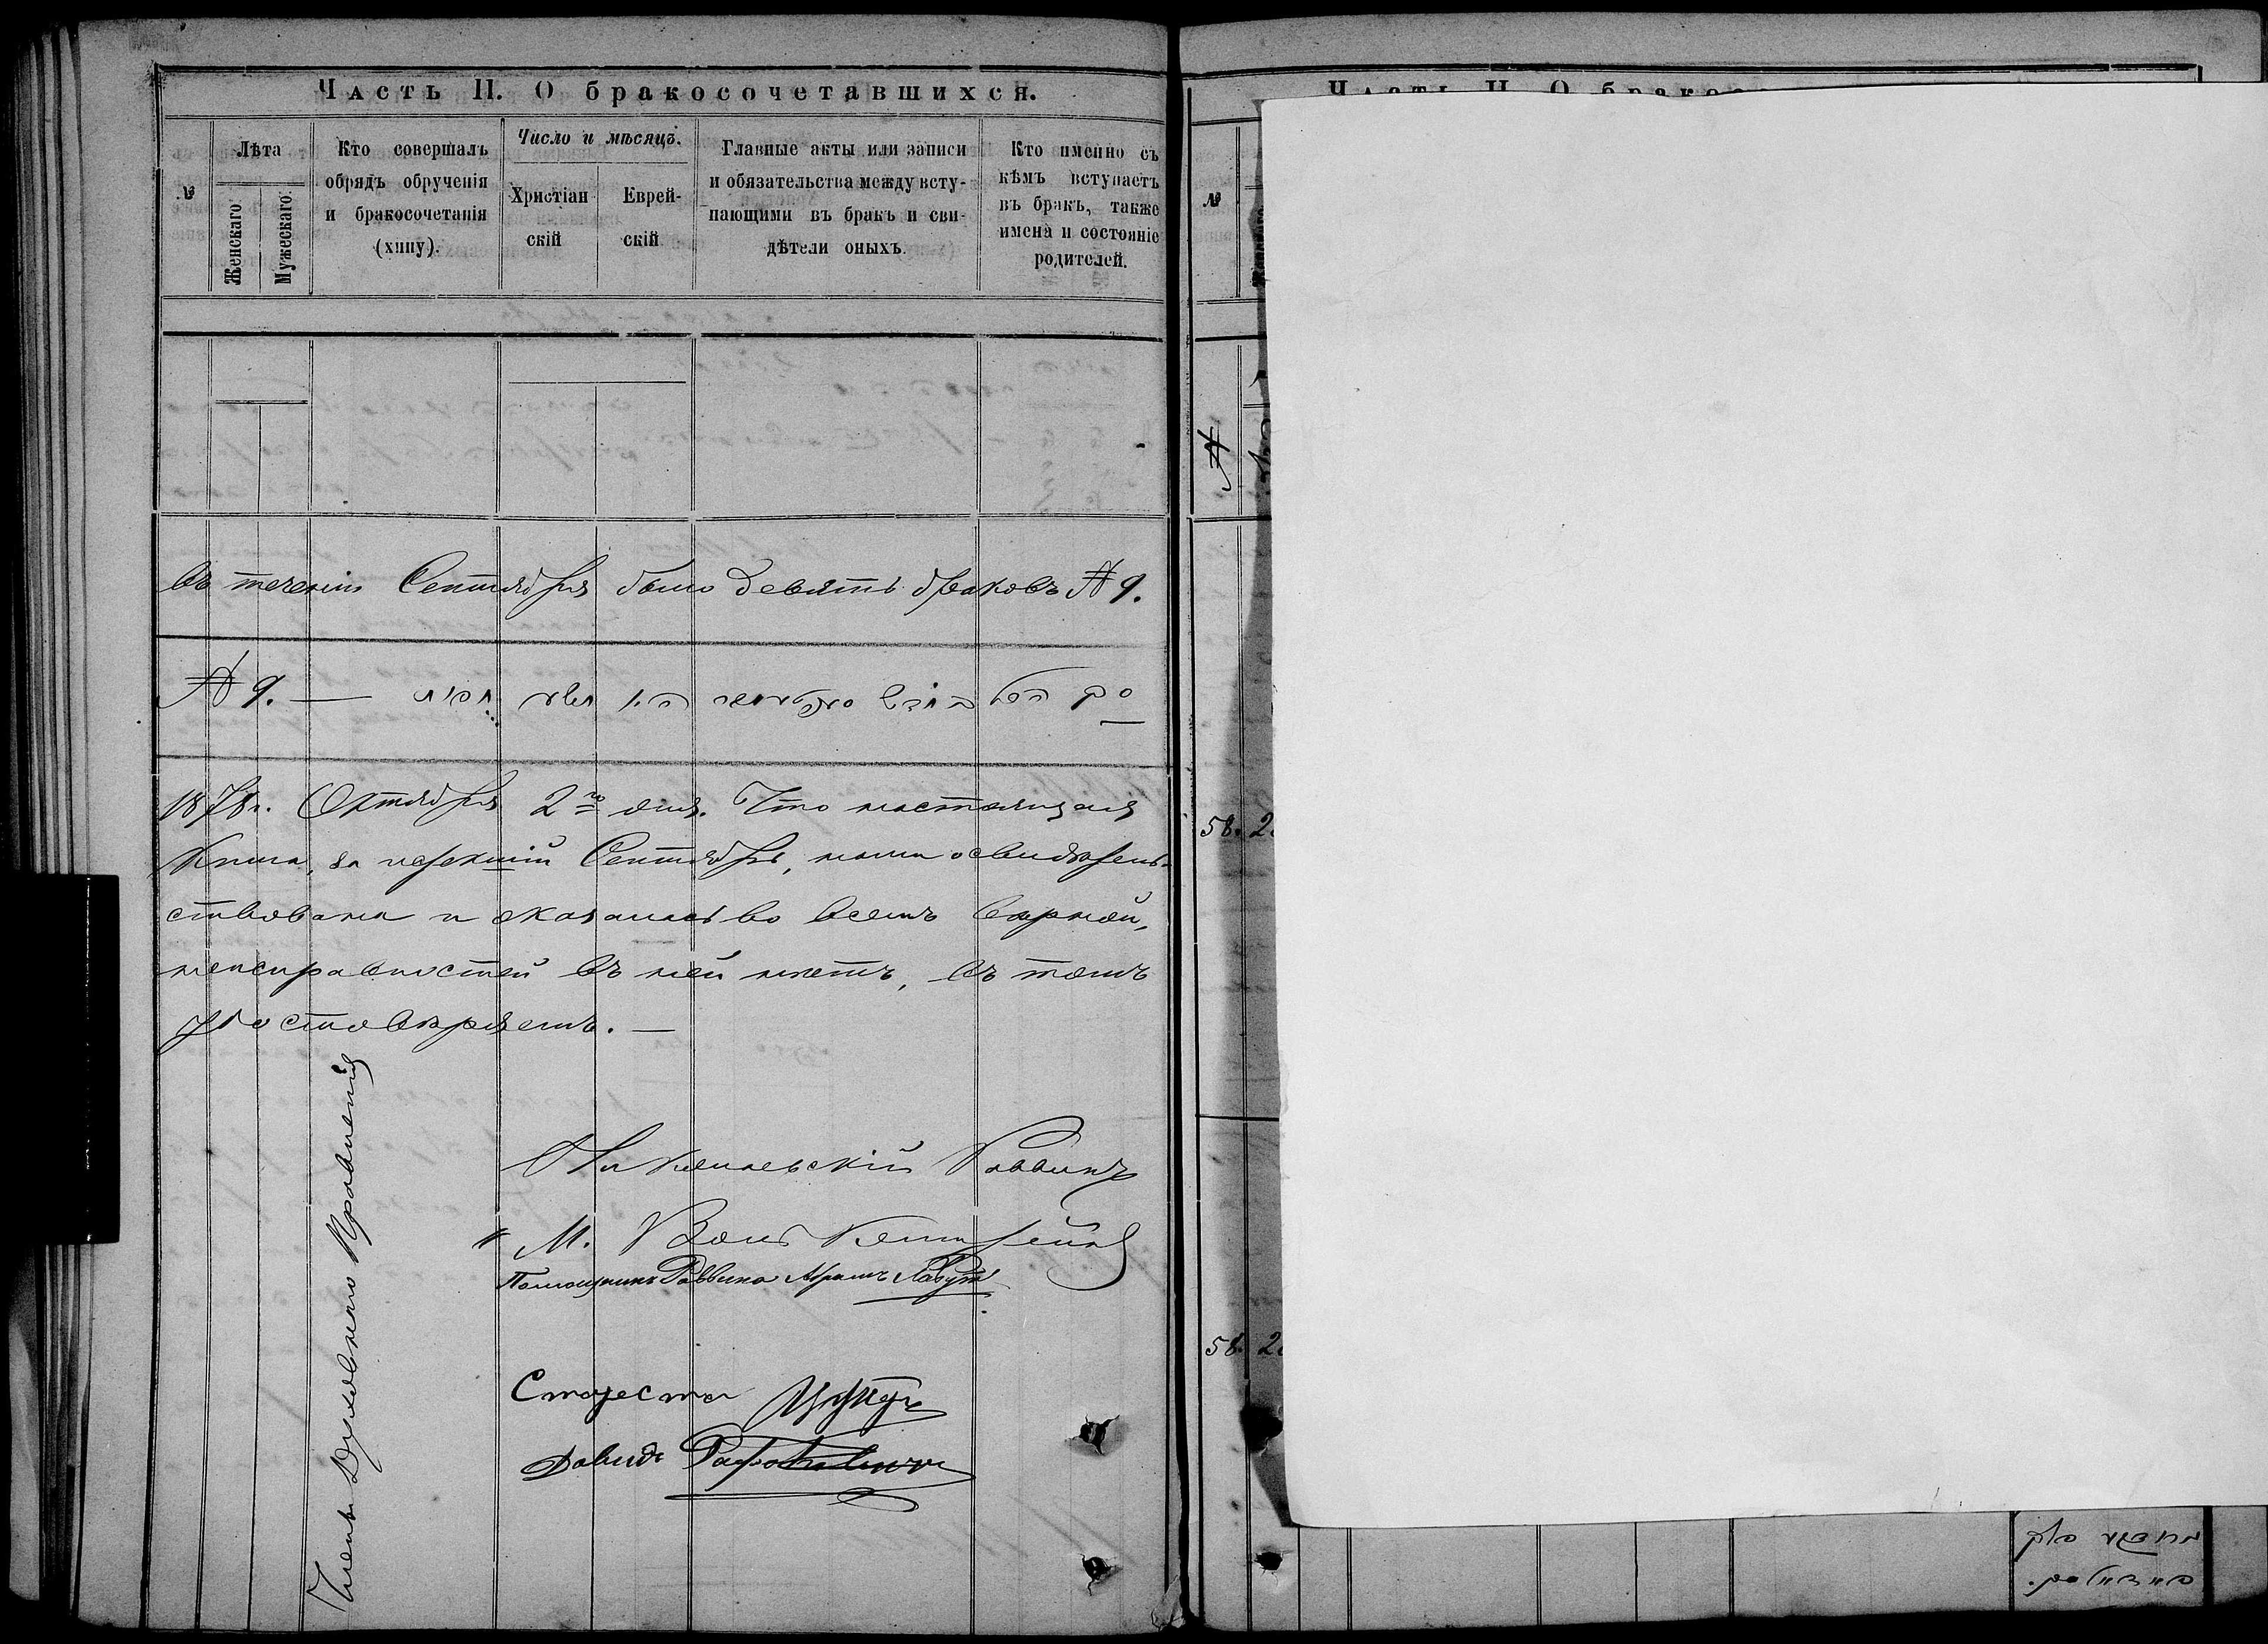 Часть II. О бракосочетавшихся.
№
Лѣта
Женскаго
Мужескаго.
Кто совершалъ
обрядъ обрученія
и бракосочетанія
(хипу).
Число и мѣсяцъ.
Христіан
скій
Еврей-
скій
Главные акты или записи
и обязательства между всту-
пающими въ бракъ и сви-
дѣтели оныхъ.
Кто именно съ
кѣмъ вступаетъ
въ бракъ, также
имена и состояніе
родителей.
Въ теченіи Сентября было девять браковъ № 9.
№ 9. —
1878 г. Октября 2го дня. Что настоящая
Книга, за истекшій Сентябрь, нами освидѣтель-
ствована и оказалась во всемъ вѣрной,
неисправностей въ ней нѣтъ, въ томъ
удостовѣряемъ. —
Члены Духовнаго Правленія
Николаевскій Раввинъ
М.
Помощникъ Раввина Абрамъ Лавутъ
Староста
Давидъ Рафаловичъ
Часть II. О брако
№
№
58. 2
58. 2